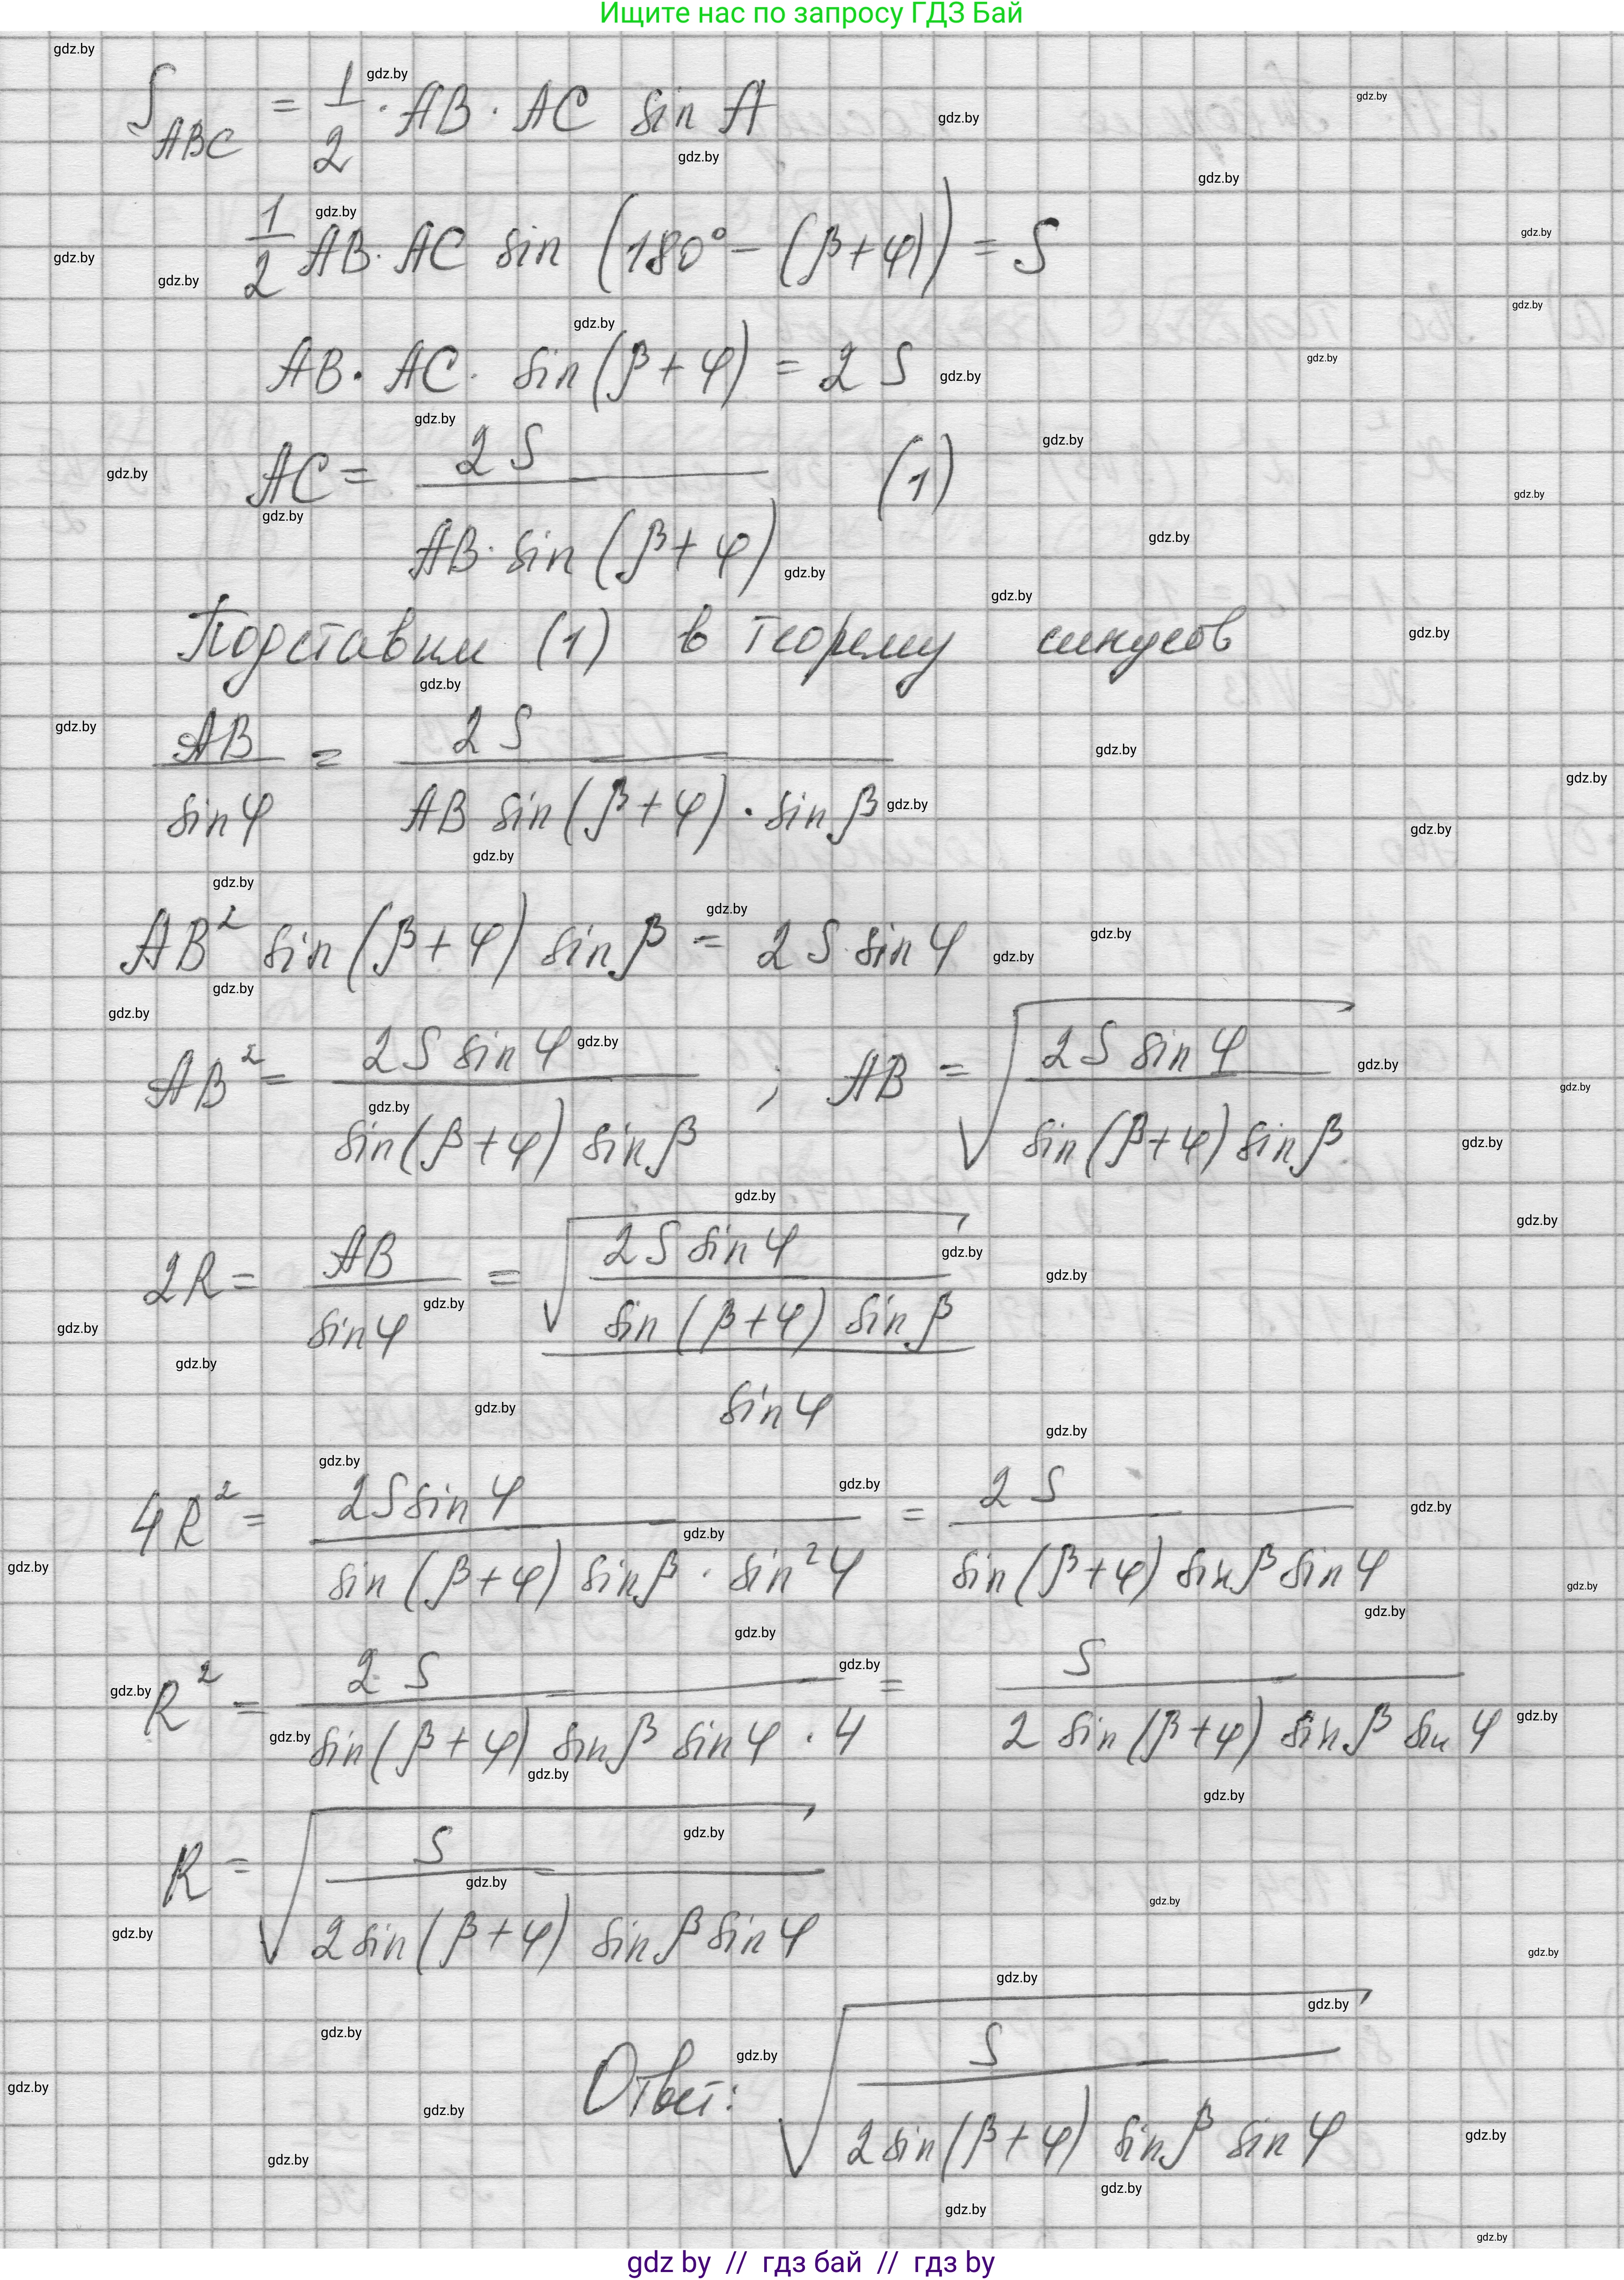 Ищите нас по запросу ГДЗ Бай
S_ABC = 1/2 · AB · AC sin A
1/2 AB · AC sin (180° − (β+φ)) = S
AB · AC · sin(β+φ) = 2S
AC = 2S / (AB · sin(β+φ)) (1)
Подставим (1) в теорему синусов
AB / sin φ = 2S / (AB sin(β+φ) · sin β)
AB² sin(β+φ) sin β = 2S · sin φ
AB² = 2S sin φ / (sin(β+φ) sin β) ; AB = √(2S sin φ / (sin(β+φ) sin β))
2R = AB / sin φ = √(2S sin φ / (sin(β+φ) sin β)) / sin φ
4R² = 2S sin φ / (sin(β+φ) sin β · sin² φ) = 2S / (sin(β+φ) sin β sin φ)
R² = 2S / (sin(β+φ) sin β sin φ · 4) = S / (2 sin(β+φ) sin β sin φ)
R = √(S / (2 sin(β+φ) sin β sin φ))
Ответ: √(S / (2 sin(β+φ) sin β sin φ))
gdz by // гдз бай // гдз by